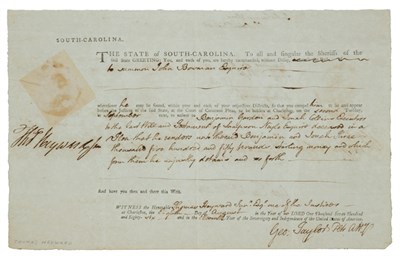 SOUTH-CAROLINA.
THE STATE of SOUTH-CAROLINA. To all and singular the Sheriffs of the
said State GREETING: You, and each of you, are hereby commanded, without Delay,
to summon John Bowman Esquire
wheresoever he may be found, within your and each of your respective Districts, so that
before the Justices of the said State, at the Court of Common Pleas, to be holden at Charleston, on the
September to answer to Benjamin and Sarah
the last Will and Testament of Esquire deceased in a
Plea that he render unto the said Benjamin and Sarah three
thousand five hundred and fifty pounds sterling money and which
from them he unjustly detains and so forth
And have you then and there this Writ.
WITNESS the Honorable Thomas Heyward Jun. Esq. one of the Justices
at Charleston, the Day of August in the Year of our LORD One Thousand Seven Hundred
and Eighty- and in the Year of the Sovereignty and Independence of the United States of America.
Tho. Heyward Jun
Geo. Taylor
THOMAS HEYWARD